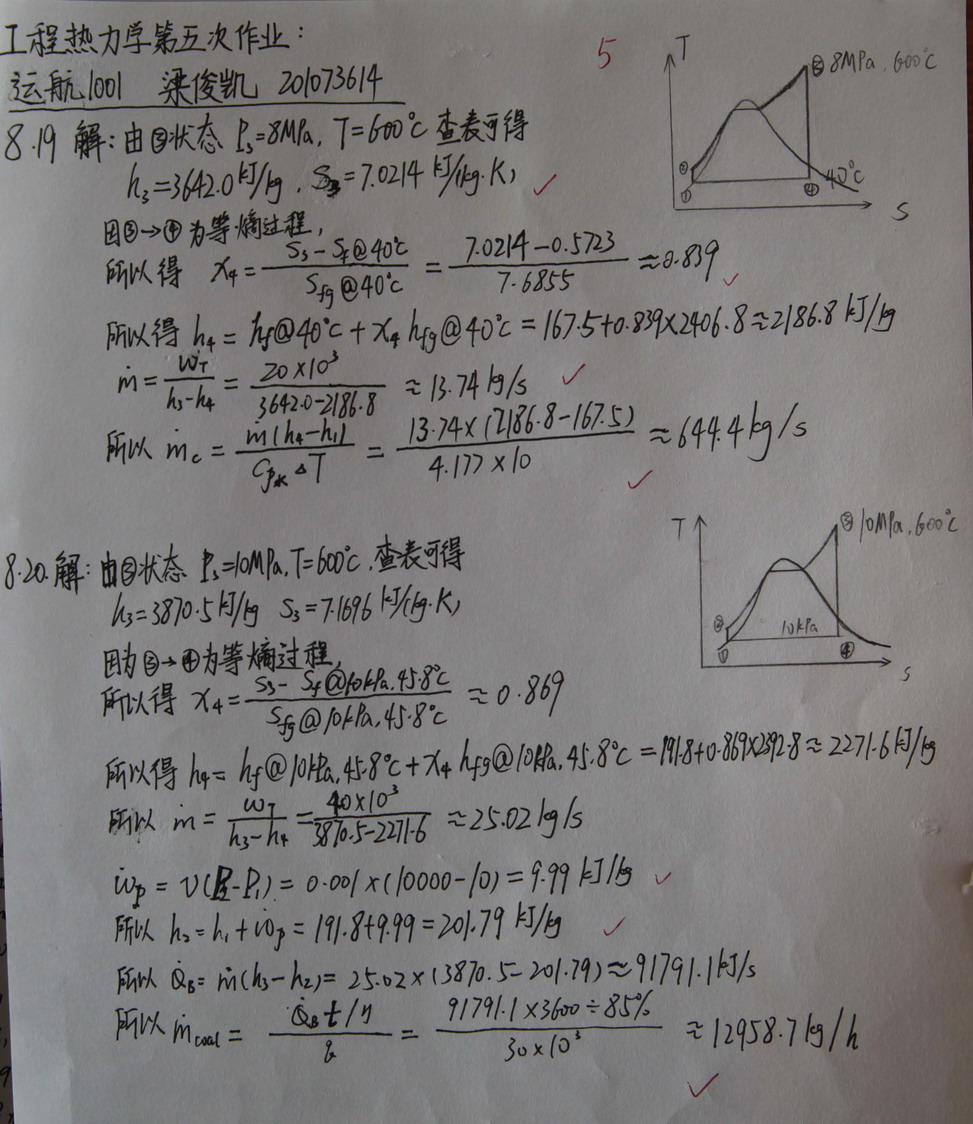 工程热力学第五次作业:
5
运航1001 梁俊凯 201073614
T
③ 8MPa, 600℃
②
①
④
40℃
S
8.19 解:由③状态 P₃=8MPa, T=600℃ 查表可得
h₃=3642.0 kJ/kg, S₃=7.0214 kJ/(kg·K),
因③→④为等熵过程,
所以得 x₄ = (S₃-Sf@40℃)/(Sfg@40℃) = (7.0214-0.5723)/7.6855 ≈ 0.839
所以得 h₄ = hf@40℃ + x₄ hfg@40℃ = 167.5+0.839×2406.8 ≈ 2186.8 kJ/kg
ṁ = ẇT/(h₃-h₄) = (20×10³)/(3642.0-2186.8) ≈ 13.74 kg/s
所以 ṁc = ṁ(h₄-h₁)/(Cp水 ΔT) = 13.74×(2186.8-167.5)/(4.177×10) ≈ 644.4 kg/s
T
③ 10MPa, 600℃
②
①
10kPa
④
S
8.20. 解:由③状态 P₃=10MPa, T=600℃, 查表可得
h₃=3870.5 kJ/kg S₃=7.1696 kJ/(kg·K),
因为③→④为等熵过程,
所以得 x₄ = (S₃-Sf@10kPa, 45.8℃)/(Sfg@10kPa, 45.8℃) ≈ 0.869
所以得 h₄ = hf@10kPa, 45.8℃ + x₄ hfg@10kPa, 45.8℃ = 191.8+0.869×2392.8 ≈ 2271.6 kJ/kg
所以 ṁ = ẇT/(h₃-h₄) = (40×10³)/(3870.5-2271.6) ≈ 25.02 kg/s
ẇp = v(P₂-P₁) = 0.001×(10000-10) = 9.99 kJ/kg
所以 h₂ = h₁+ẇp = 191.8+9.99 = 201.79 kJ/kg
所以 Q̇B = ṁ(h₃-h₂) = 25.02×(3870.5-201.79) ≈ 91791.1 kJ/s
所以 ṁcoal = (Q̇B t/η)/q = (91791.1×3600÷85%)/(30×10³) ≈ 12958.7 kg/h